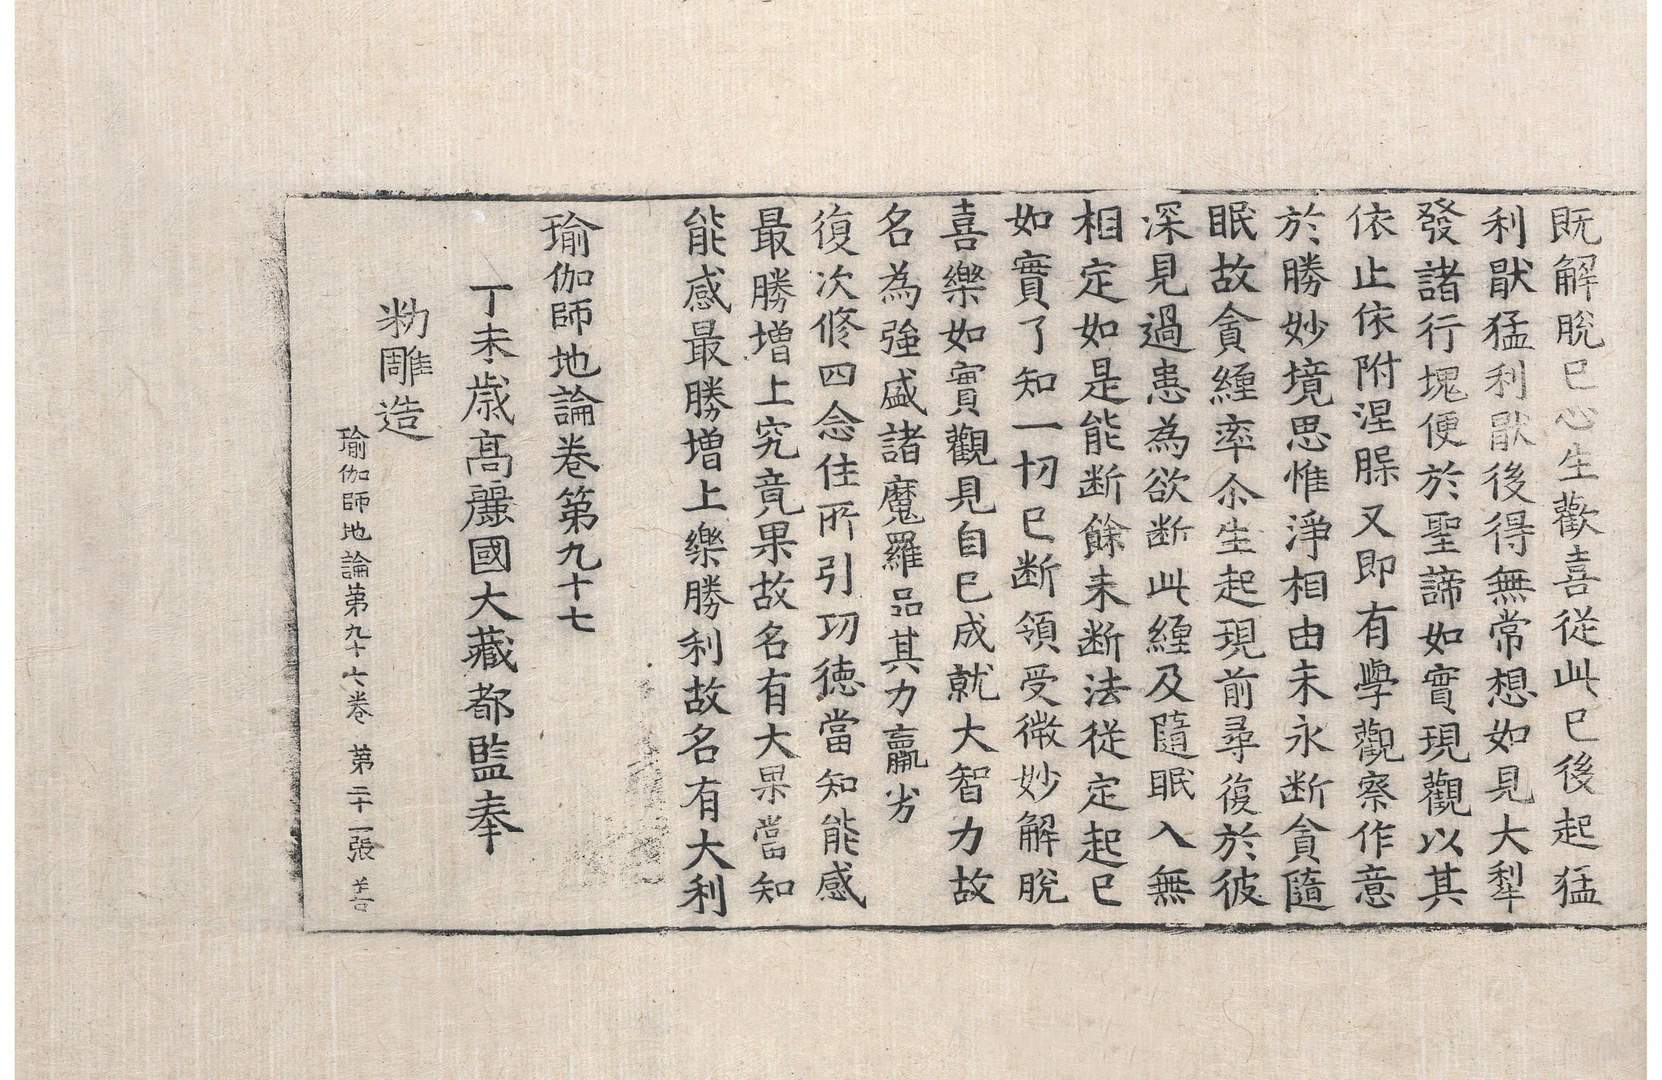 既解脫已心生歡喜從此已後起猛
利猒猛利猒後得無常想如見大犁
發諸行塊便於聖諦如實現觀以其
依止依附涅槃又即有學觀察作意
於勝妙境思惟淨相由未永斷貪隨
眠故貪纏率尒生起現前尋復於彼
深見過患為欲斷此纏及隨眠入無
相定如是能斷餘未斷法從定起已
如實了知一切已斷領受微妙解脫
喜樂如實觀見自已成就大智力故
名為強盛諸魔羅品其力羸劣
復次修四念住所引功德當知能感
最勝增上究竟果故名有大果當知
能感最勝增上樂勝利故名有大利
瑜伽師地論卷第九十七
丁未歲高麗國大藏都監奉
勑雕造
瑜伽師地論第九十七卷 第二十一張 善